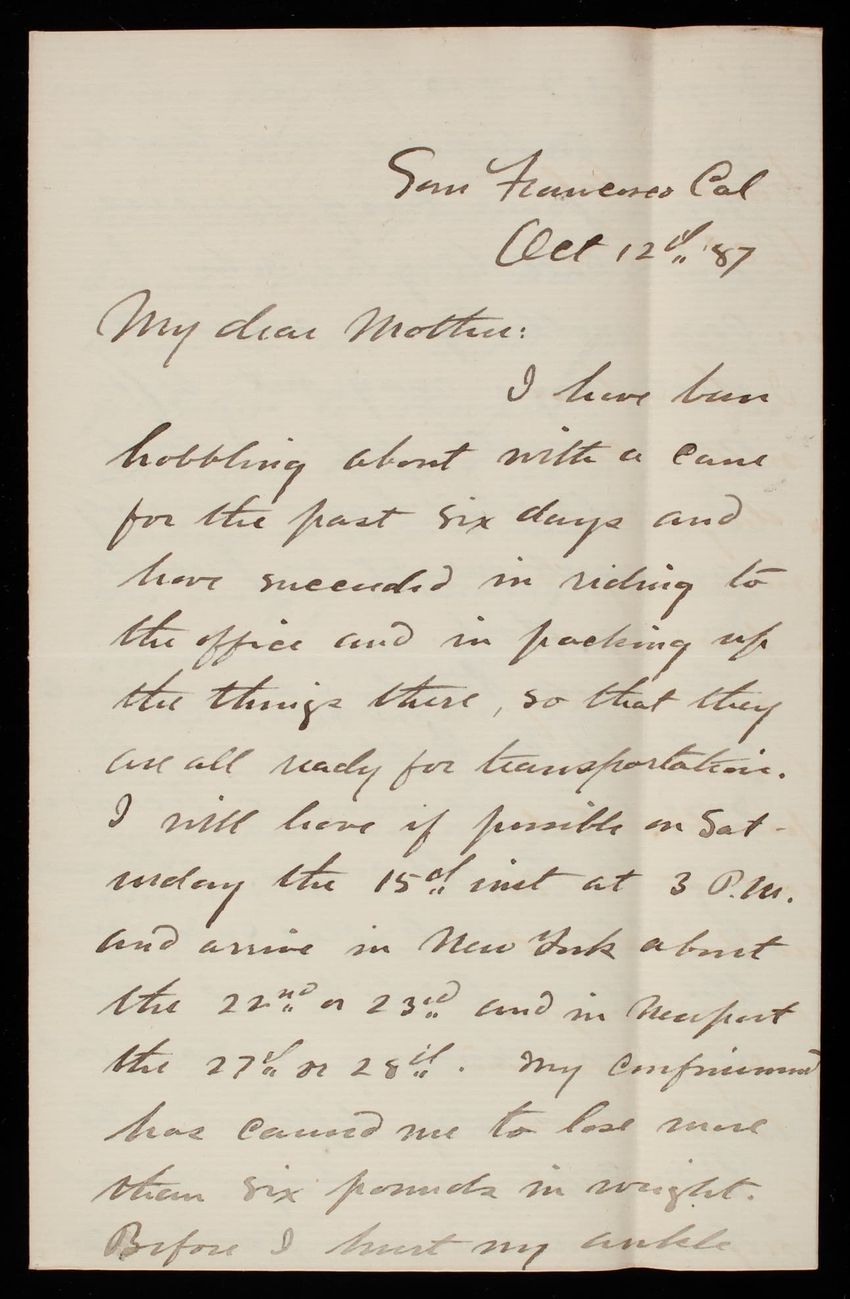 San Francisco Cal
Oct 12th '87
My dear Mother:
I have been
hobbling about with a cane
for the past six days and
have succeeded in riding to
the office and in packing up
the things there, so that they
are all ready for transportation.
I will leave if possible on Sat-
urday the 15th inst at 3 P.M.
and arrive in New York about
the 22nd or 23rd and in Newport
the 27th or 28th. My confinement
has caused me to lose more
than six pounds in weight.
Before I hurt my ankle